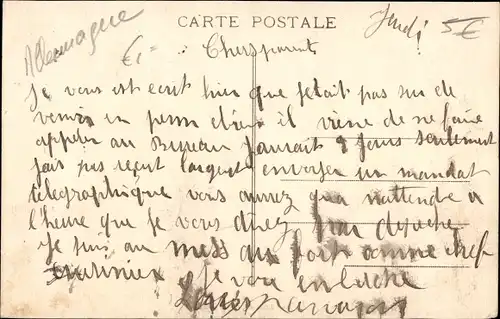 Allemagne
CARTE POSTALE
Jeudi
5€
€1=
Chers parents
Je vous est ecrit hier que jetait pas sur de
venir en perm et bien il viene de me faire
appeler au Bureau jaurait 8 jours seulement
jais pas reçut largent envoyer un mandat
télégraphique vous aurez qua mattendre a
l'heure que je vous direz par depeche
je suis au mess du fort comme chef
cuisinier je vous